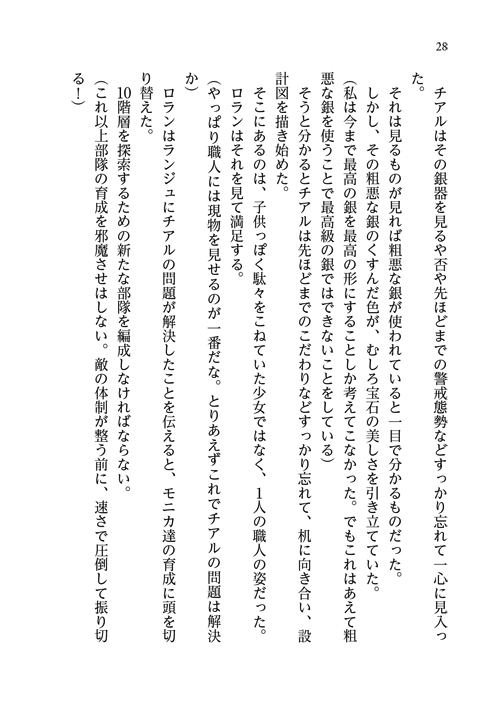 28
　チアルはその銀器を見るや否や先ほどまでの警戒態勢などすっかり忘れて一心に見入っ
た。
　それは見るものが見れば粗悪な銀が使われていると一目で分かるものだった。
　しかし、その粗悪な銀のくすんだ色が、むしろ宝石の美しさを引き立てていた。
（私は今まで最高の銀を最高の形にすることしか考えてこなかった。でもこれはあえて粗
悪な銀を使うことで最高級の銀ではできないことをしている）
　そうと分かるとチアルは先ほどまでのこだわりなどすっかり忘れて、机に向き合い、設
計図を描き始めた。
　そこにあるのは、子供っぽく駄々をこねていた少女ではなく、１人の職人の姿だった。
　ロランはそれを見て満足する。
（やっぱり職人には現物を見せるのが一番だな。とりあえずこれでチアルの問題は解決
か）
　ロランはランジュにチアルの問題が解決したことを伝えると、モニカ達の育成に頭を切
り替えた。
　10階層を探索するための新たな部隊を編成しなければならない。
（これ以上部隊の育成を邪魔させはしない。敵の体制が整う前に、速さで圧倒して振り切
る！）